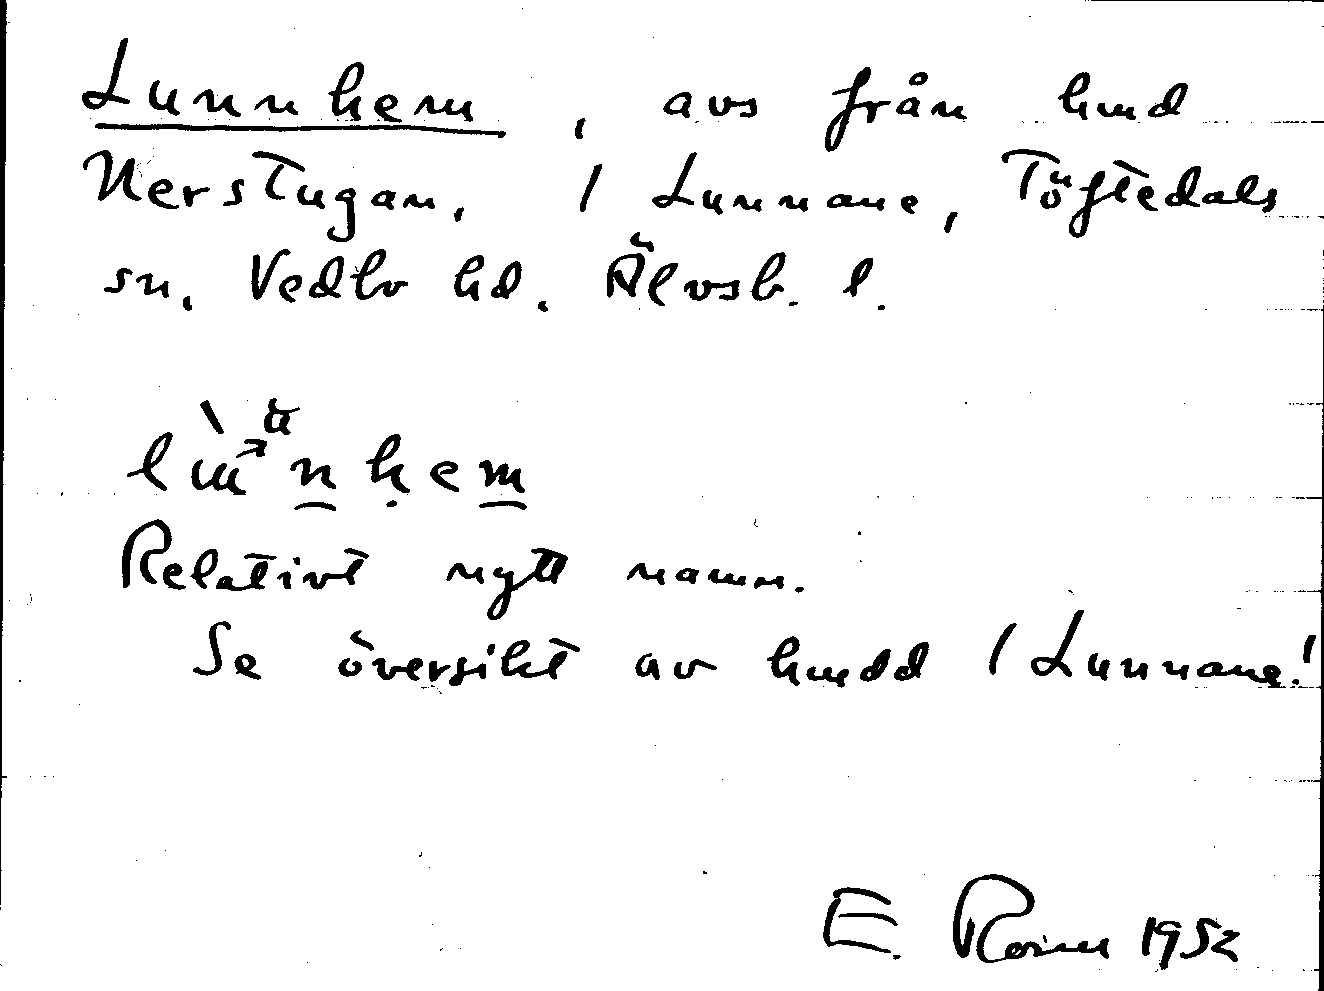 Lunnhem, avs från hmd
Nerstugan, 1 Lunnane, Töftedals
sn. Vedbo hd. Älvsb. l.
Relativt nytt namn.
Se översikt av hmdd 1 Lunnane!
E. 1952